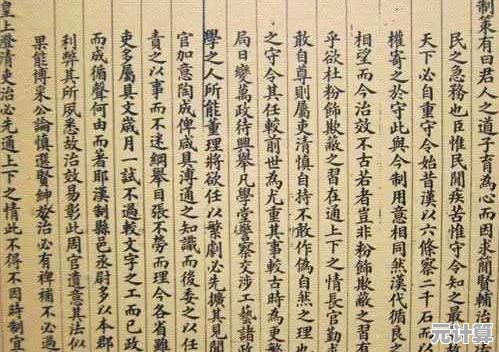 制策有曰君人之道子育為心而因求聞賢輔治
民之急務也臣惟民閒疾苦惟守令知之最
天下必自重守令始昔漢以六條察二千石而
權寄之於守此與今制用意相同然漢代循良
相望而今治效不古若者豈非粉飾欺蔽之習有
乎欲杜粉飾欺蔽之習在通上下之情長官勤
敢自尊則屬吏清慎自持不敢作偽自然之理也
之守令其任較前世為尤重其事較古時為更繁
局日變萬政待興舉凡學堂警察交涉工藝諸政
學之人所能董理將欲任以繁劇必先擴其見聞
官加意陶成俾咸具溥通之知識而後委之以任
責之以事而不迷綱舉目張不勞而理今各省雖
吏多屬具文歲月一試不過較文字之工而已政
而成循聲何由而著耶漢制縣邑丞尉多以本郡
利弊其所夙悉故治效易彰此周官遺意其法似
果能博采公論慎選賢紳於治必有裨補不必過
皇上澄清吏治必先通上下之情此不得不因時制宜
元计算